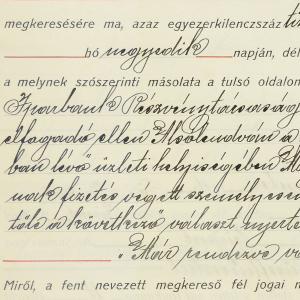 megkeresésére ma, azaz egyezerkilenczszáz ti
hó negyedik napján, dél
a melynek szószerinti másolata a tulsó oldalon
Iparbank Részvénytársaság
elfogadó ellen Alsólendván a
ban lévő üzleti helyiségében
nak fizetés végett személyesen
tőle a következő választ nyerte
"Már rendezve va
Miről, a fent nevezett megkereső fél jogai m